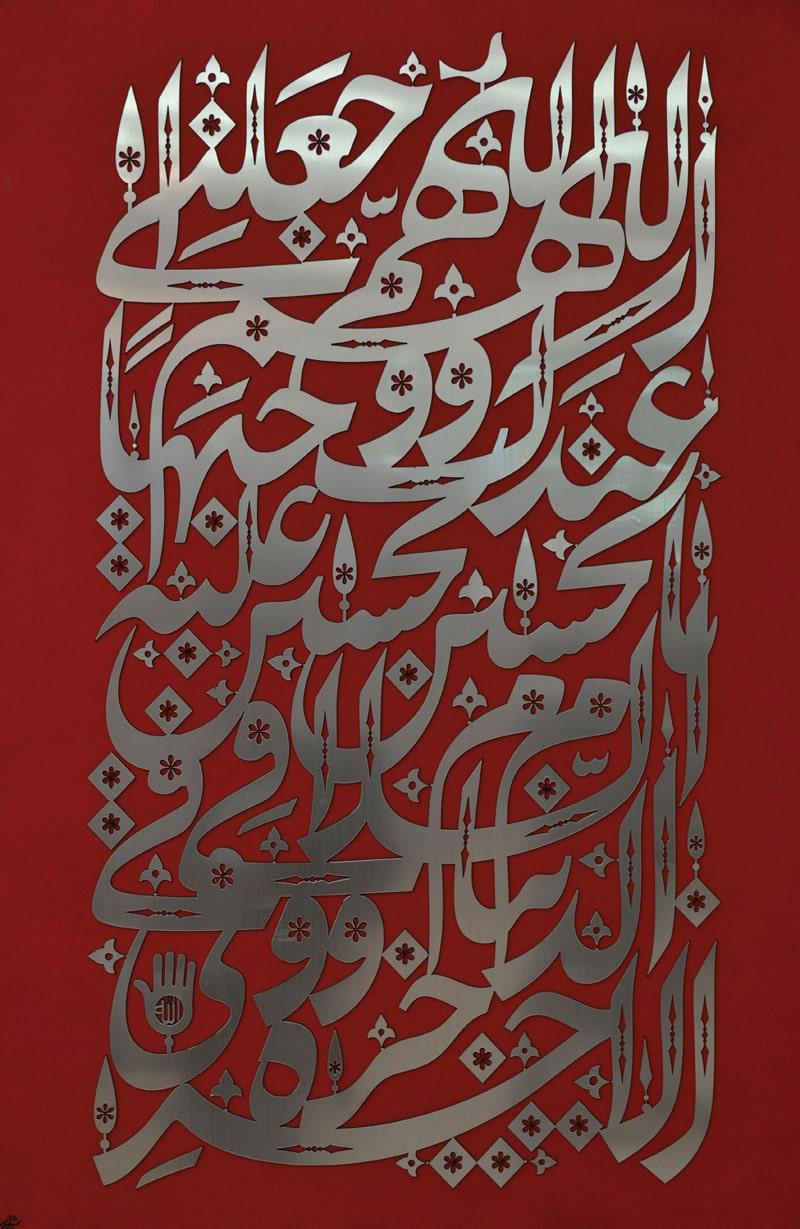 اللهم اجعلنی
عندک وجیهاً
بالحسین علیه
السلام فی
الدنیا و
الاخرة